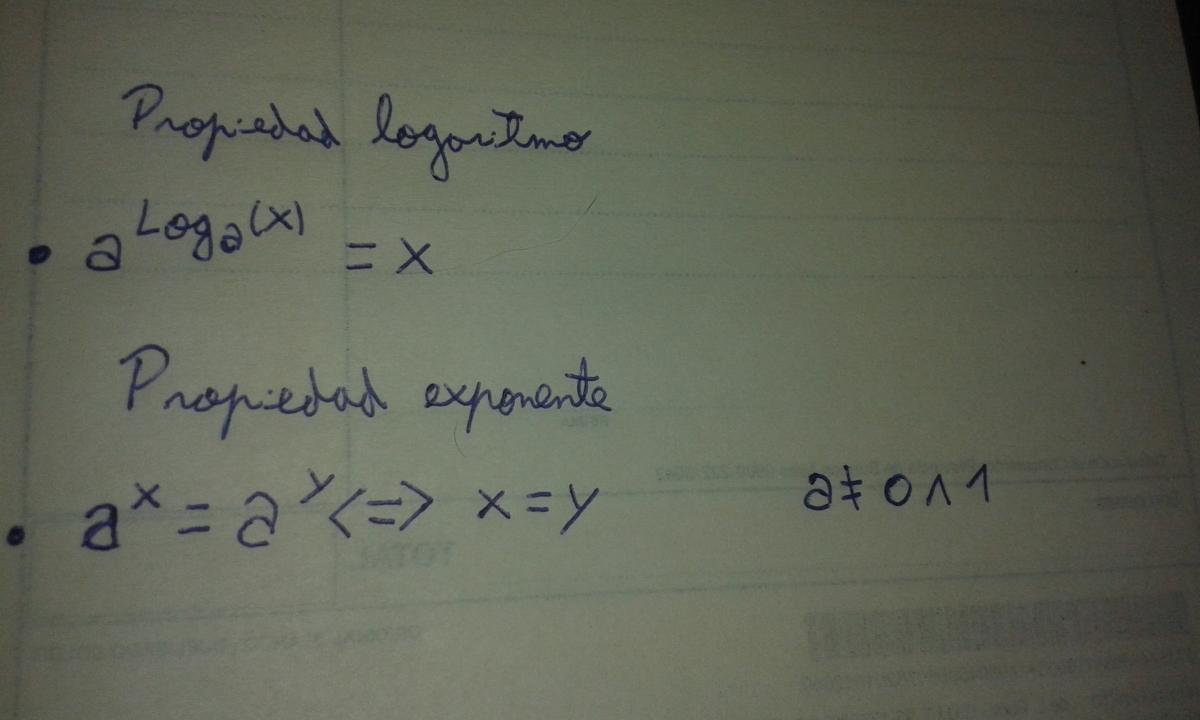 Propiedad logaritmo
• a^Log_a(x) = x
Propiedad exponente
• a^x = a^y <=> x = y a ≠ 0 ∧ 1
TOTAL